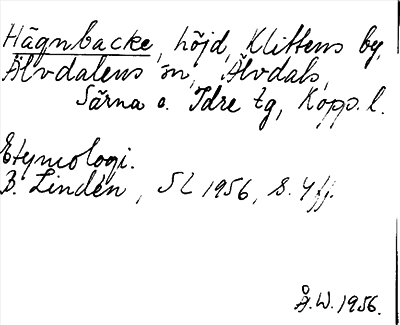 Hägnbacke, höjd, Klittens by,
Älvdalens sn, Älvdals,
Särna o. Idre tg, Kopp. l.
Etymologi.
B. Lindén, SL 1956, s. 4 ff.
Å.W. 1956.